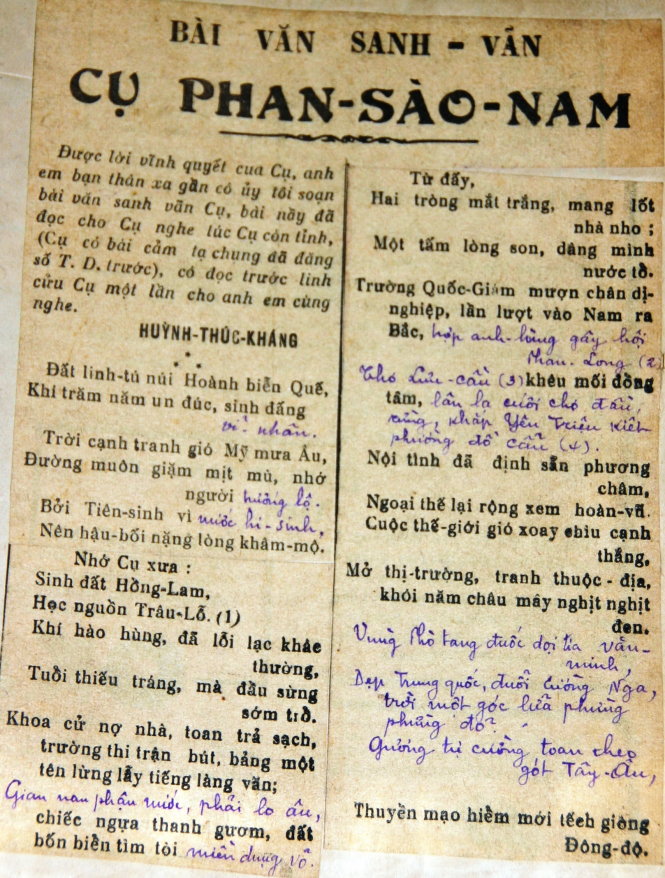 BÀI VĂN SANH - VẤN
CỤ PHAN-SÀO-NAM
Được lời vĩnh quyết của Cụ, anh
em bạn thân xa gần có ủy tôi soạn
bài văn sanh vấn Cụ, bài nầy đã
đọc cho Cụ nghe lúc Cụ còn tỉnh,
(Cụ có bài cảm tạ chung đã đăng
số T. D. trước), có đọc trước linh
cửu Cụ một lần cho anh em cùng
nghe.
HUỲNH-THÚC-KHÁNG
Đất linh-tú núi Hoành biển Quế,
Khí trăm năm un đúc, sinh đấng
vĩ nhân.
Trời cạnh tranh gió Mỹ mưa Âu,
Đường muôn giặm mịt mù, nhớ
người hướng lộ.
Bởi Tiên-sinh vì nước hi-sinh,
Nên hậu-bối nặng lòng khâm-mộ.
Nhớ Cụ xưa :
Sinh đất Hồng-Lam,
Học nguồn Trâu-Lỗ. (1)
Khí hào hùng, đã lỗi lạc khác
thường,
Tuổi thiếu tráng, mà đầu sừng
sớm trổ.
Khoa cử nợ nhà, toan trả sạch,
trường thi trận bút, bảng một
tên lừng lẫy tiếng làng văn;
Gian nan phận nước, phải lo âu,
chiếc ngựa thanh gươm, đất
bốn biển tìm tòi miền dụng võ.
Từ đấy,
Hai tròng mắt trắng, mang lốt
nhà nho ;
Một tấm lòng son, dâng mình
nước tổ.
Trường Quốc-Giám mượn chân dị-
nghiệp, lần lượt vào Nam ra
Bắc, hợp anh-hùng gây hội
Phan-Long (2)
Thơ Lưu-cầu (3) khêu mối đồng
tâm, lân la cuối chợ đầu
rừng, khắp Yên Triệu kiết
phường đồ cẩu (4).
Nội tình đã định sẵn phương
châm,
Ngoại thế lại rộng xem hoàn-vũ.
Cuộc thế-giới gió xoay chiều cạnh
thắng,
Mở thị-trường, tranh thuộc - địa,
khói năm châu mây nghịt nghịt
đen.
Vùng Phò tang đuốc dọi tia văn-
minh,
Dẹp Trung quốc, đuổi Cường Nga,
trời một góc lửa phừng
phừng đỏ.
Gương tự cường toan theo
gót Tây-Âu,
Thuyền mạo hiểm mới tếch giòng
Đông-độ.